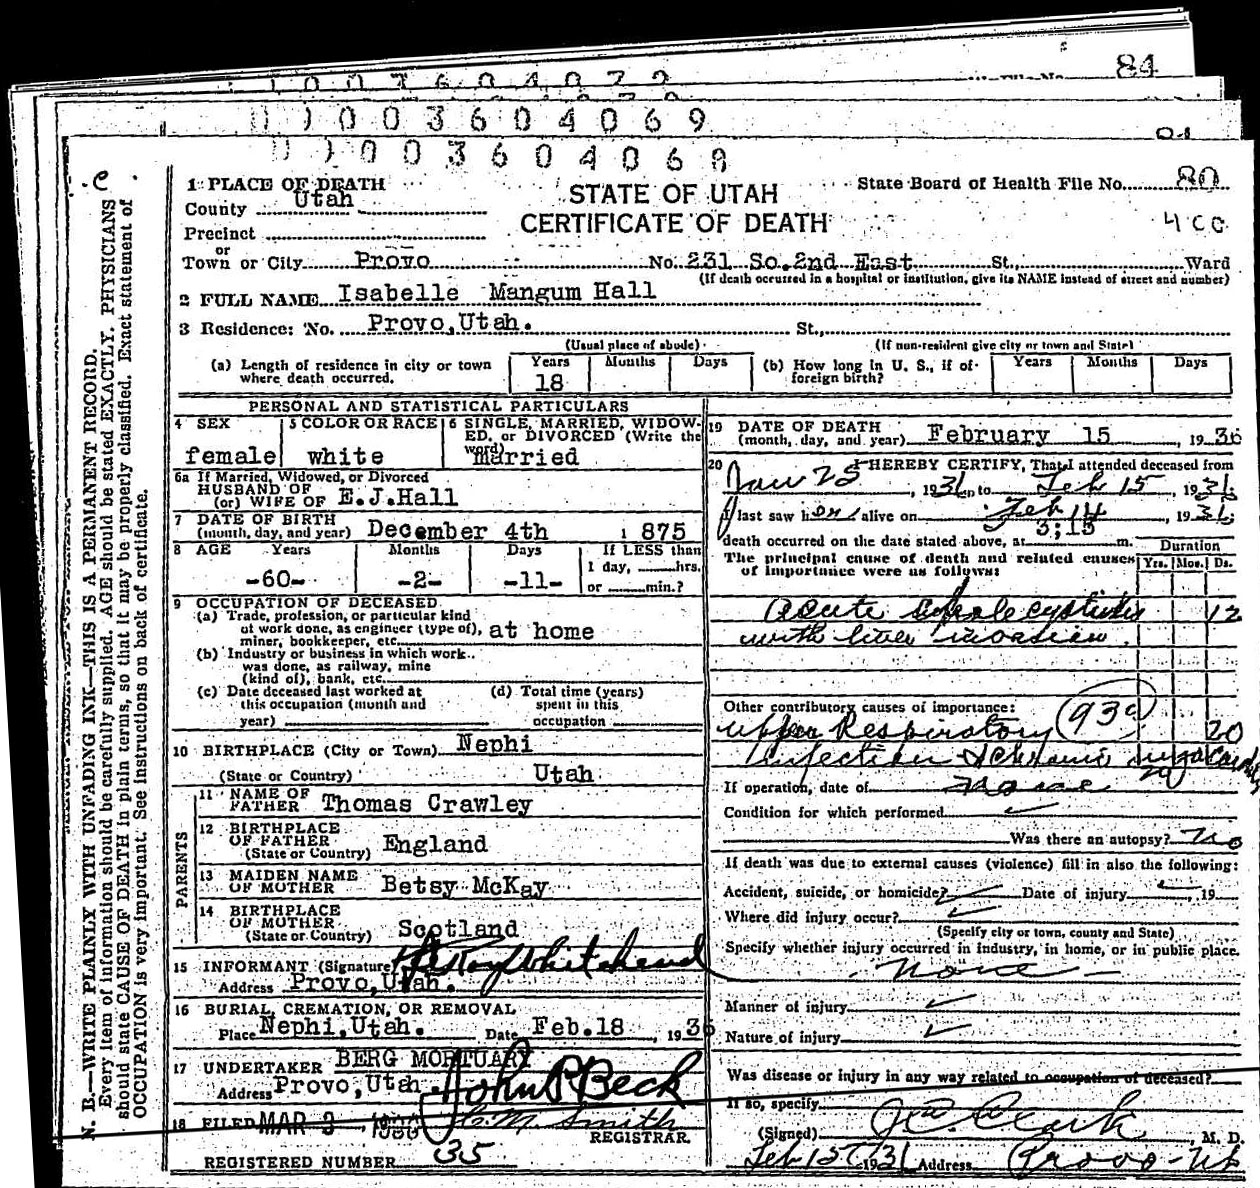 84
0 0 3 6 0 4 0 7 2
0 0 3 6 0 4 0 6 9
81
0 0 3 6 0 4 0 6 8
C
N. B.—WRITE PLAINLY WITH UNFADING INK—THIS IS A PERMANENT RECORD.
Every item of information should be carefully supplied. AGE should be stated EXACTLY. PHYSICIANS
should state CAUSE OF DEATH in plain terms, so that it may be properly classified. Exact statement of
OCCUPATION is very important. See instructions on back of certificate.
1 PLACE OF DEATH
County Utah
STATE OF UTAH
CERTIFICATE OF DEATH
State Board of Health File No. 80
4 CC
Precinct
or
Town or City Provo No. 231 So.2nd East St., Ward
(If death occurred in a hospital or institution, give its NAME instead of street and number)
2 FULL NAME Isabelle Mangum Hall
3 Residence: No. Provo,Utah. St.,
(Usual place of abode) (If non-resident give city or town and State)
(a) Length of residence in city or town where death occurred. Years 18 Months Days
(b) How long in U. S., if of foreign birth? Years Months Days
PERSONAL AND STATISTICAL PARTICULARS
4 SEX female
5 COLOR OR RACE white
6 SINGLE, MARRIED, WIDOWED, or DIVORCED (Write the word) married
6a If Married, Widowed, or Divorced
HUSBAND OF
(or) WIFE OF E.J.Hall
7 DATE OF BIRTH
(month, day, and year) December 4th 1875
8 AGE Years -60- Months -2- Days -11- If LESS than
1 day, hrs.
or min.?
9 OCCUPATION OF DECEASED
(a) Trade, profession, or particular kind
of work done, as engineer (type of),
miner, bookkeeper, etc. at home
(b) Industry or business in which work
was done, as railway, mine
(kind of), bank, etc.
(c) Date deceased last worked at
this occupation (month and
year)
(d) Total time (years)
spent in this
occupation
10 BIRTHPLACE (City or Town) Nephi
(State or Country) Utah
PARENTS
11 NAME OF
FATHER Thomas Crawley
12 BIRTHPLACE
OF FATHER
(State or Country) England
13 MAIDEN NAME
OF MOTHER Betsy McKay
14 BIRTHPLACE
OF MOTHER
(State or Country) Scotland
15 INFORMANT (Signature) Whitehead
Address Provo,Utah.
16 BURIAL, CREMATION, OR REMOVAL
Place Nephi,Utah. Date Feb.18 1936
17 UNDERTAKER BERG MORTUARY
Address Provo,Utah. John P Beck
18 FILED MAR 3 1936 C.M. Smith
REGISTRAR.
REGISTERED NUMBER 35
19 DATE OF DEATH
(month, day, and year) February 15, 1936
20 I HEREBY CERTIFY, That I attended deceased from
Jan 25, 1936, to Feb 15, 1936
I last saw her alive on Feb 14, 1936
death occurred on the date stated above, at 3;15 m.
The principal cause of death and related causes
of importance were as follows:
Duration
Yrs. Mos. Ds.
Acute Cholecystitis 12
with liver invasion
Other contributory causes of importance:
93c
Upper Respiratory 20
infection & Chronic
If operation, date of none
Condition for which performed
Was there an autopsy? No
If death was due to external causes (violence) fill in also the following:
Accident, suicide, or homicide? Date of injury , 19
Where did injury occur?
(Specify city or town, county and State)
Specify whether injury occurred in industry, in home, or in public place.
none
Manner of injury
Nature of injury
Was disease or injury in any way related to occupation of deceased?
If so, specify
(Signed) Clark, M. D.
Feb 15 1936 Address Provo-Ut